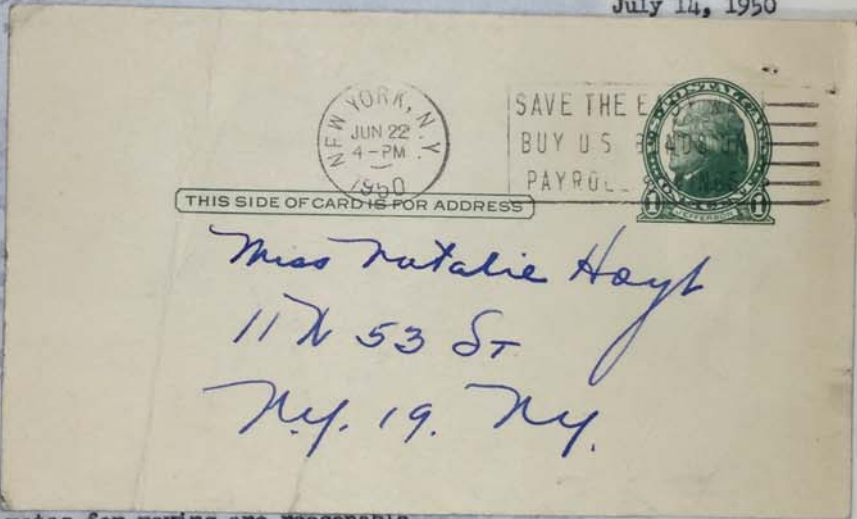 July 14, 1950
NEW YORK, N.Y.
JUN 22
4-PM
1950
SAVE THE
BUY U S
U.S. POSTAL CARD
JEFFERSON
1 1
THIS SIDE OF CARD IS FOR ADDRESS
Miss Natalie Hoyt
11 W 53 St
N.Y. 19. N.Y.
rates for moving are reasonable